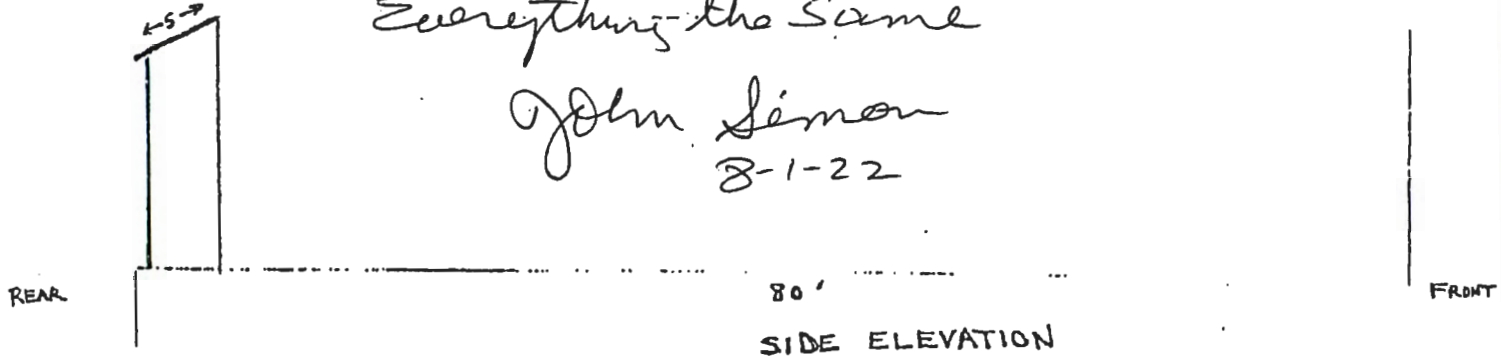 ←5→
Everything the Same
John Simon
8-1-22
REAR
80'
FRONT
SIDE ELEVATION